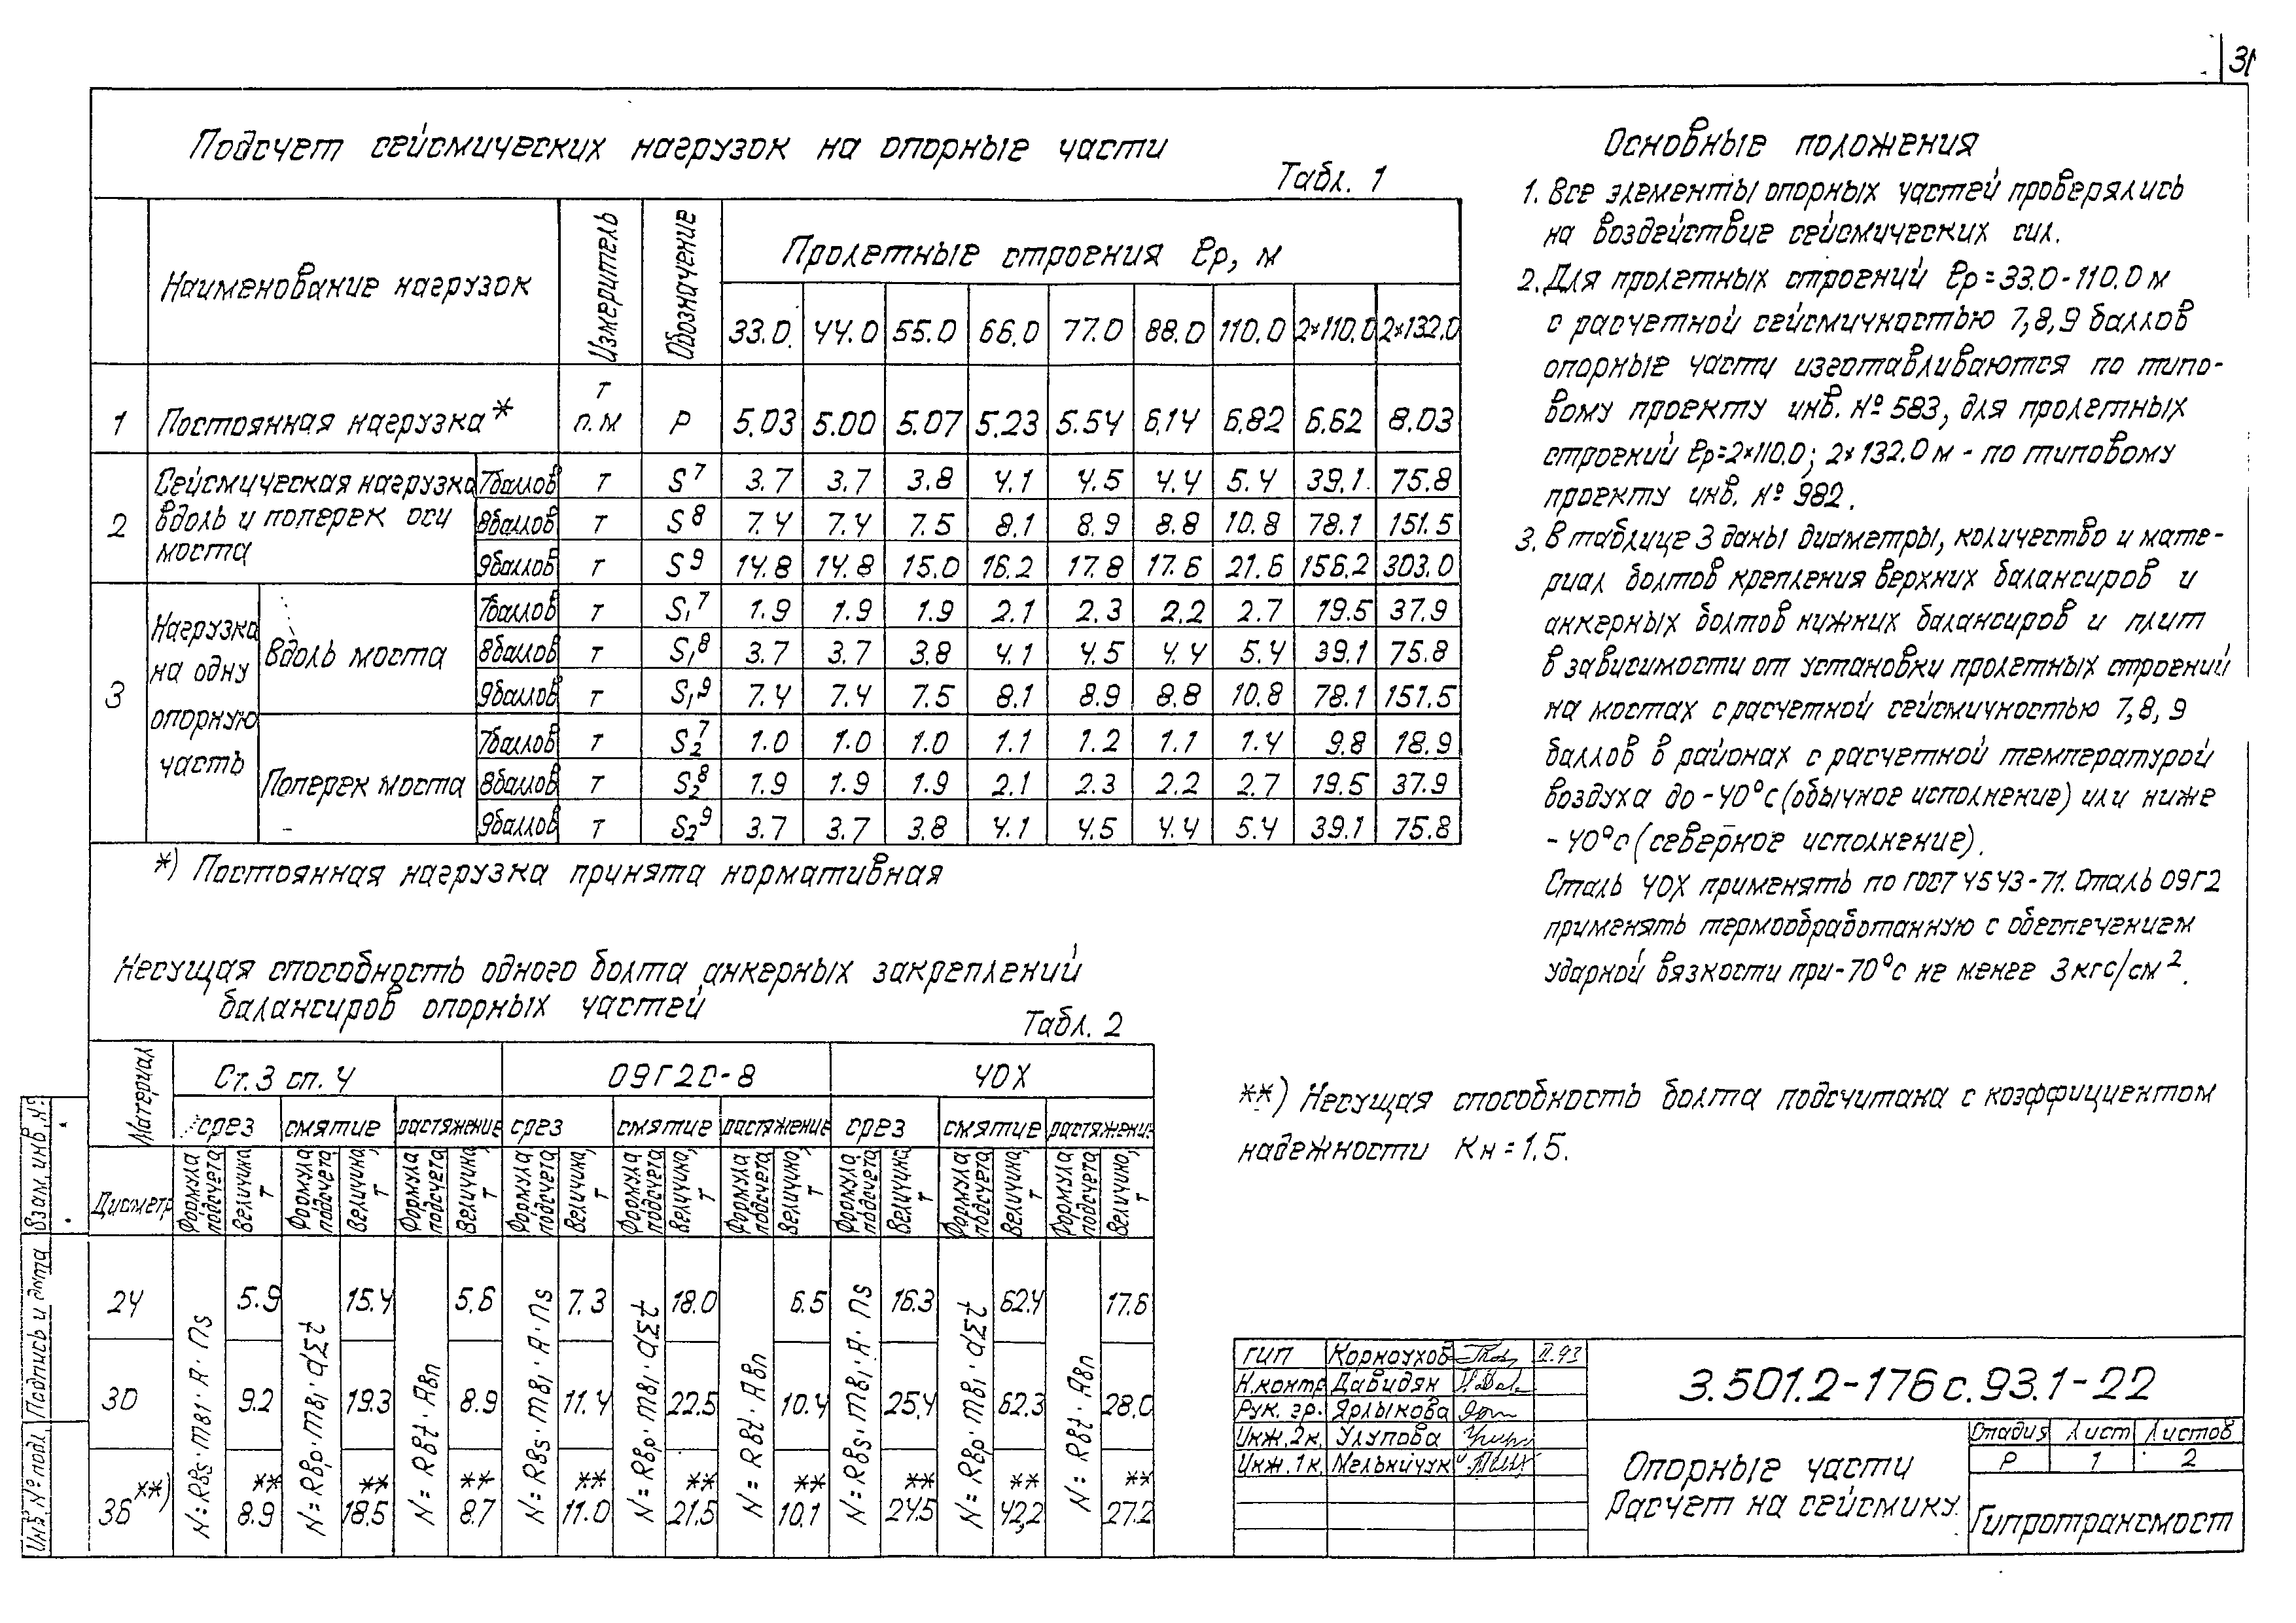 31
Подсчет сейсмических нагрузок на опорные части
Табл. 1
Наименование нагрузок | Измеритель | Обозначение | Пролетные строения ℓр, м
33.0 | 44.0 | 55.0 | 66.0 | 77.0 | 88.0 | 110.0 | 2×110.0 | 2×132.0
1 | Постоянная нагрузка* | т п.м | P | 5.03 | 5.00 | 5.07 | 5.23 | 5.54 | 6.14 | 6.82 | 6.62 | 8.03
2 | Сейсмическая нагрузка вдоль и поперек оси моста | 7баллов | т | S⁷ | 3.7 | 3.7 | 3.8 | 4.1 | 4.5 | 4.4 | 5.4 | 39.1 | 75.8
8баллов | т | S⁸ | 7.4 | 7.4 | 7.5 | 8.1 | 8.9 | 8.8 | 10.8 | 78.1 | 151.5
9баллов | т | S⁹ | 14.8 | 14.8 | 15.0 | 16.2 | 17.8 | 17.6 | 21.6 | 156.2 | 303.0
3 | Нагрузка на одну опорную часть | Вдоль моста | 7баллов | т | S₁⁷ | 1.9 | 1.9 | 1.9 | 2.1 | 2.3 | 2.2 | 2.7 | 19.5 | 37.9
8баллов | т | S₁⁸ | 3.7 | 3.7 | 3.8 | 4.1 | 4.5 | 4.4 | 5.4 | 39.1 | 75.8
9баллов | т | S₁⁹ | 7.4 | 7.4 | 7.5 | 8.1 | 8.9 | 8.8 | 10.8 | 78.1 | 151.5
Поперек моста | 7баллов | т | S₂⁷ | 1.0 | 1.0 | 1.0 | 1.1 | 1.2 | 1.1 | 1.4 | 9.8 | 18.9
8баллов | т | S₂⁸ | 1.9 | 1.9 | 1.9 | 2.1 | 2.3 | 2.2 | 2.7 | 19.5 | 37.9
9баллов | т | S₂⁹ | 3.7 | 3.7 | 3.8 | 4.1 | 4.5 | 4.4 | 5.4 | 39.1 | 75.8
*) Постоянная нагрузка принята нормативная
Несущая способность одного болта анкерных закреплений
балансиров опорных частей
Табл. 2
Материал | Ст.3 сп. 4 | 09Г2С-8 | 40Х
срез | смятие | растяжение | срез | смятие | растяжение | срез | смятие | растяжение
Диаметр | Формула подсчета | Величина, т | Формула подсчета | Величина, т | Формула подсчета | Величина, т | Формула подсчета | Величина, т | Формула подсчета | Величина, т | Формула подсчета | Величина, т | Формула подсчета | Величина, т | Формула подсчета | Величина, т | Формула подсчета | Величина, т
N=Rbs·mb1·A·ns | N=Rbp·mb1·dΣt | N=Rbt·Abn | N=Rbs·mb1·A·ns | N=Rbp·mb1·dΣt | N=Rbt·Abn | N=Rbs·mb1·A·ns | N=Rbp·mb1·dΣt | N=Rbt·Abn
24 | 5.9 | 15.4 | 5.6 | 7.3 | 18.0 | 6.5 | 16.3 | 62.4 | 17.6
30 | 9.2 | 19.3 | 8.9 | 11.4 | 22.5 | 10.4 | 25.4 | 62.3 | 28.0
36**) | **8.9 | **18.5 | **8.7 | **11.0 | **21.5 | **10.1 | **24.5 | **42,2 | **27.2
Основные положения
1. Все элементы опорных частей проверялись
на воздействие сейсмических сил.
2. Для пролетных строений ℓр=33.0-110.0м
с расчетной сейсмичностью 7,8,9 баллов
опорные части изготавливаются по типо-
вому проекту инв. № 583, для пролетных
строений ℓр=2×110.0; 2×132.0м - по типовому
проекту инв. № 982.
3. В таблице 3 даны диаметры, количество и мате-
риал болтов крепления верхних балансиров и
анкерных болтов нижних балансиров и плит
в зависимости от установки пролетных строений
на мостах с расчетной сейсмичностью 7, 8, 9
баллов в районах с расчетной температурой
воздуха до -40°с (обычное исполнение) или ниже
-40°с (северное исполнение).
Сталь 40Х применять по ГОСТ 4543-71. Сталь 09Г2
применять термообработанную с обеспечением
ударной вязкости при -70°с не менее 3кгс/см².
**) Несущая способность болта подсчитана с коэффициентом
надежности Кн=1.5.
ГИП | Корноухов | II.93
Н.контр | Давидян
Рук. гр. | Ярлыкова
Инж.2к. | Улупова
Инж.1к. | Мельничук
3.501.2-176с.93.1-22
Опорные части
Расчет на сейсмику.
Стадия | Лист | Листов
Р | 1 | 2
Гипротрансмост
Взам. инв. №
Подпись и дата
Инв. № подл.